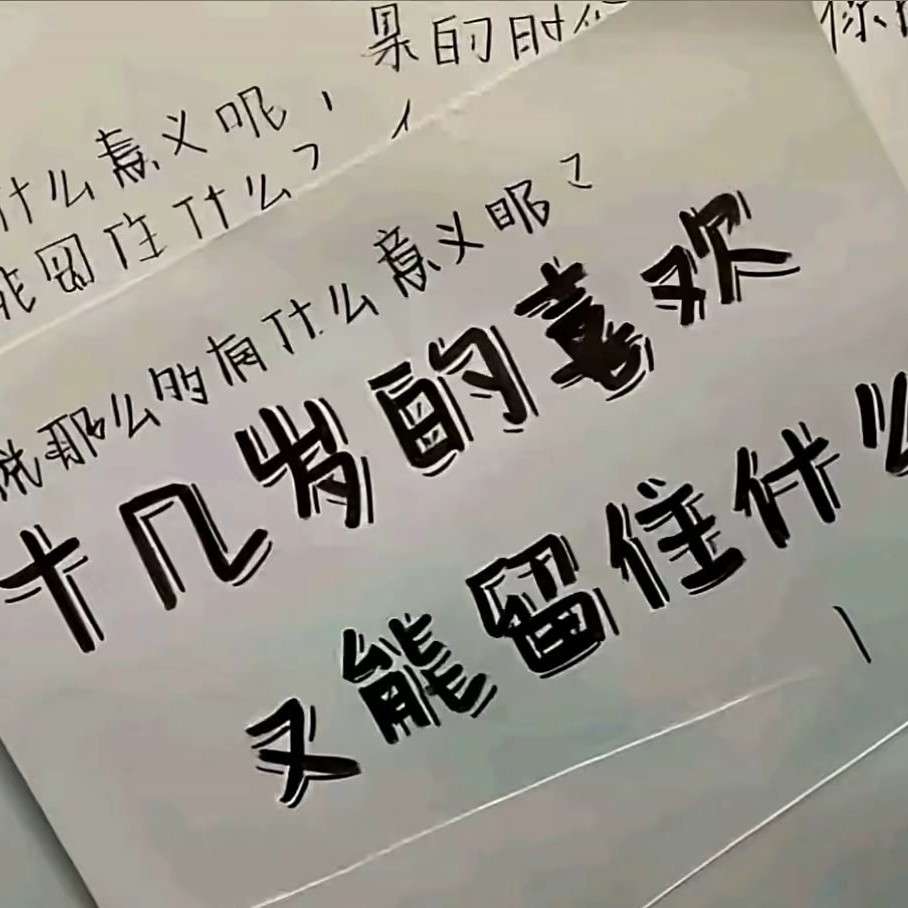 果的时
你
什么意义呢，
能留住什么？
说那么的有什么意义呢？
十几岁的喜欢
又能留住什么